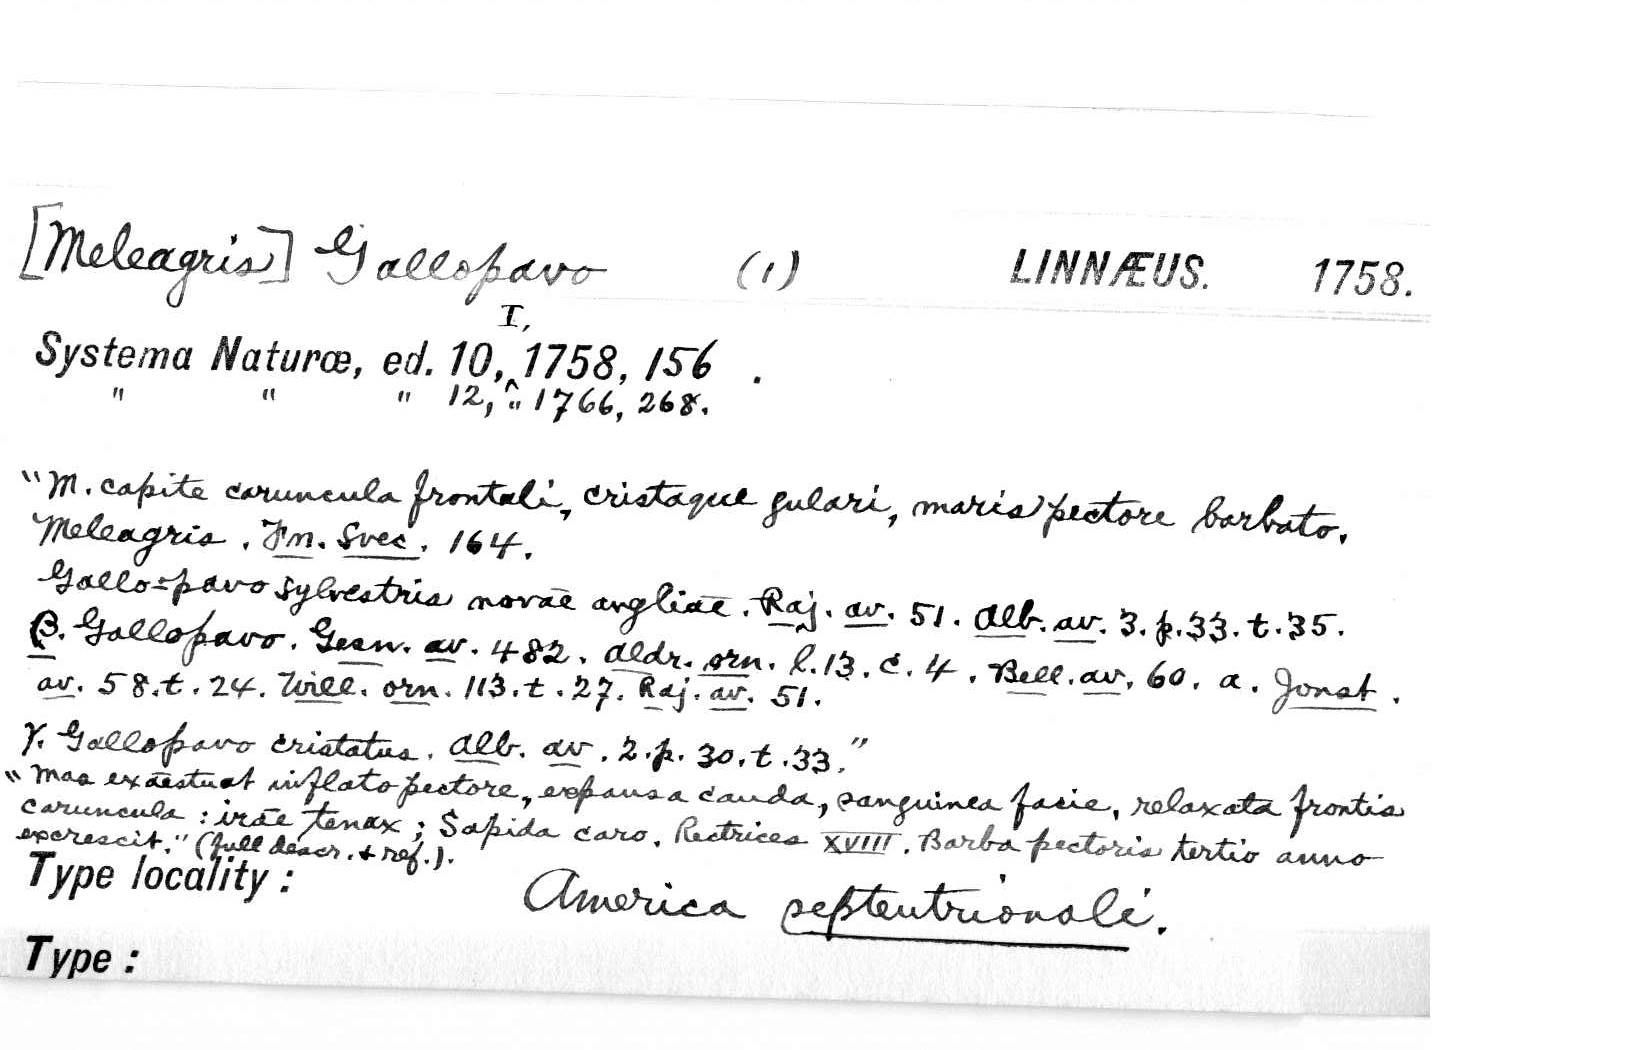 [Meleagris] Gallopavo (1) LINNÆUS. 1758.
I,
Systema Naturæ, ed. 10, ^ 1758, 156 .
" " " 12, " 1766, 268.
"M. capite caruncula frontali, cristaque gulari, maris pectore barbato.
Meleagris. Fn. Svec. 164.
Gallo-pavo sylvestris novae angliae. Raj. av. 51. Alb. av. 3. p. 33. t. 35.
β. Gallopavo. Gesn. av. 482. Aldr. orn. l. 13. c. 4. Bell. av. 60. a. Jonst.
av. 58. t. 24. Will. orn. 113. t. 27. Raj. av. 51.
γ. Gallopavo cristatus. Alb. av. 2. p. 30. t. 33."
"Mas exaestuat inflato pectore, expansa cauda, sanguinea facie, relaxata frontis
caruncula : irae tenax ; Sapida caro. Rectrices XVIII. Barba pectoris tertio anno
excrescit." (full descr. & ref.).
Type locality : America septentrionali.
Type :